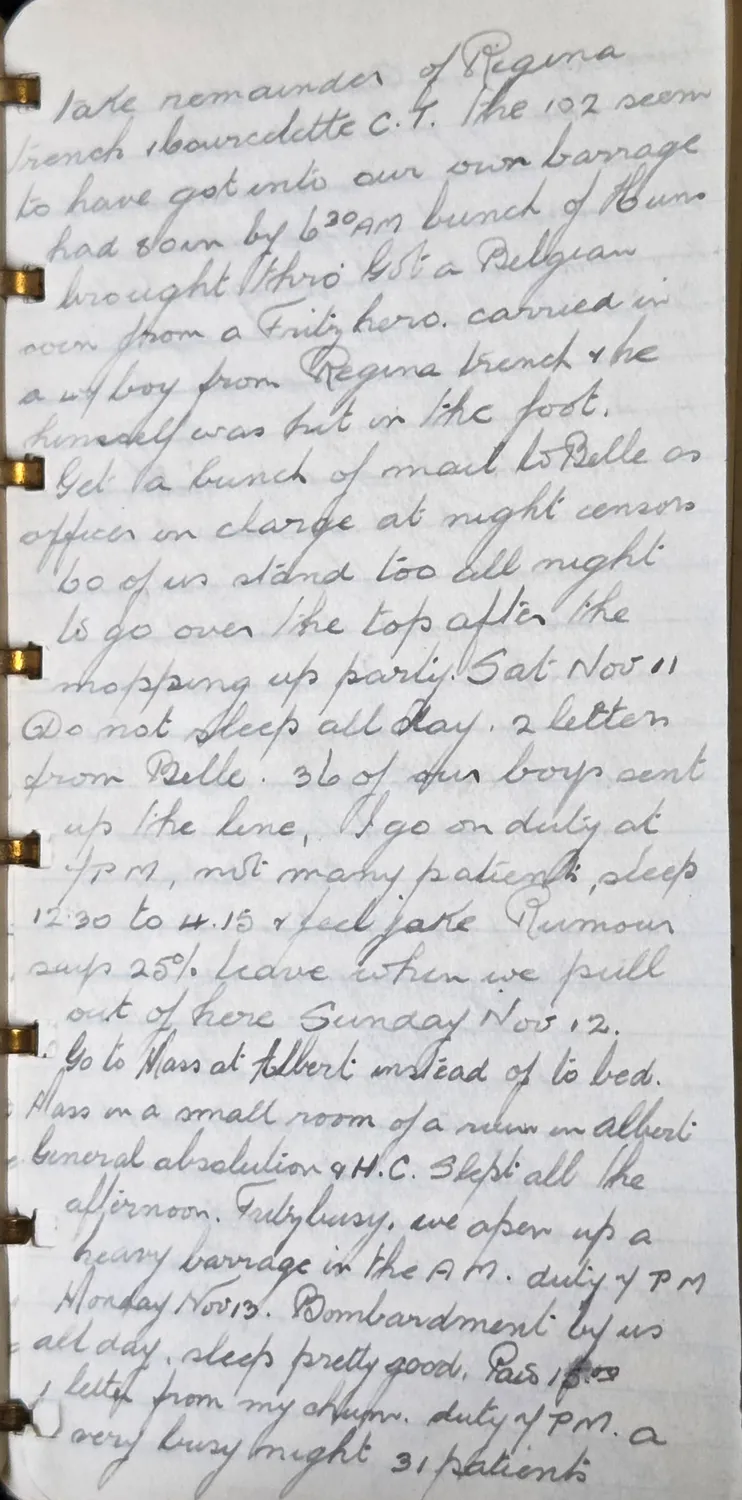 Take remainder of Regina
trench & bourcelette C.T. The 102 seem
to have got into our own barrage
had 80 in by 6 30 AM bunch of Huns
brought thro Got a Belgian
coin from a Fritz hero. carried in
a boy from Regina trench & he
himself was hit in the foot.
Get a bunch of mail to Belle as
officer in clarge at night censors
60 of us stand too all night
to go over the top after the
mopping up party. Sat Nov 11
Do not sleep all day. 2 letters
from Belle. 36 of our boys sent
up the line, I go on duty at
7 PM, not many patients, sleep
12.30 to 4.15 & feel jake Rumour
says 25% leave when we pull
out of here Sunday Nov 12.
Go to Mass at Albert instead of to bed.
Mass in a small room of a ruin in Albert
General absolution & H.C. Slept all the
afternoon. Fritz busy. we open up a
heavy barrage in the AM. duty 7 PM
Monday Nov 13. Bombardment by us
all day. sleep pretty good. Paid 15.00
1 letter from my chum. duty 7 PM. a
very busy night 31 patients